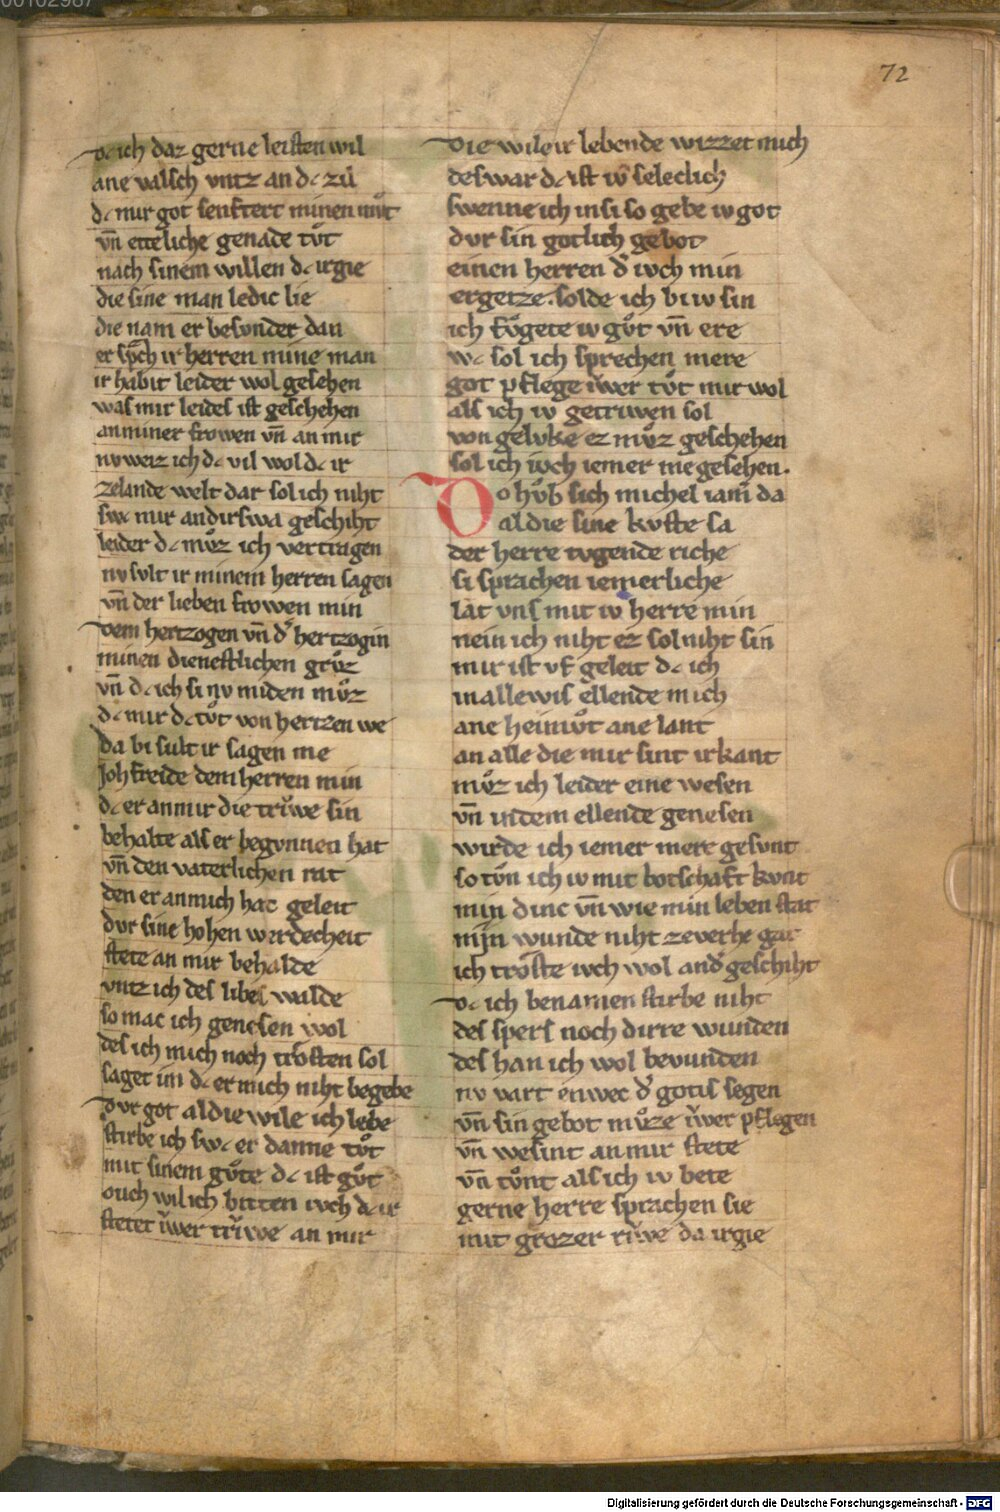 72
dc ich daz gerne leisten wil
ane valsch vntz an dc zil
dc mir got senftert minen můt
vn̄ etteliche genade tůt
nach sinem willen dc irgie
die sine man ledic lie
die nam er besvnder dan
er sp̄ch ir herren mine man
ir habit leider wol gesehen
was mir leides ist geschehen
an miner frowen vn̄ an mir
nv weiz ich dc vil wol dc ir
zelande welt dar sol ich niht
swc mir andirswa geschiht
leider dc můz ich vertragen
nv svlt ir minem herren sagen
vn̄ der lieben frowen min
dem hertzogen vn̄ d' hertzogin
minen dienestlichen grůz
vn̄ dc ich si nv miden můz
dc mir dc tůt von hertzen we
da bi sult ir sagen me
Johfreide dem herren min
dc er an mir die trv̌we sin
behalte als er begvnnen hat
vn̄ den vaterlichen rat
den er an mich hat geleit
dvr sine hohen werdecheit
stete an mir behalde
vntz ich des libes walde
so mac ich genesen wol
des ich mich noch trösten sol
saget im dc er mich niht begebe
dvr got al die wile ich lebe
stirbe ich swc er danne tůt
mit sinem gůte dc ist gůt
ouch wil ich bitten ivch dc ir
stetet v̌wer trv̌we an mir
die wile ir lebende wizzet mich
deswar dc ist iv̌ seleclich
swenne ich insi so gebe iv got
dvr sin gotlich gebot
einen herren d' ivch min
ergetze. solde ich bi iv sin
ich fůgete iv gůt vn̄ ere
wc sol ich sprechen mere
got pflege v̌wer tůt mir wol
als ich iv getriwen sol
von gelvke ez můz geschehen
sol ich ivch iemer me gesehen.
Do hůb sich michel iam̄ da
al die sine kvste sa
der herre tvgende riche
si sprachen iemerliche
lat vns mit iv herre min
nein ich niht ez sol niht sin
mir ist vf geleit dc ich
in allewis ellende mich
ane heimůt ane lant
an alle die mir sint irkant
můz ich leider eine wesen
vn̄ in dem ellende genesen
wirde ich iemer mere gesvnt
so tůn ich iv mit botschaft kvnt
min dinc vn̄ wie min leben stat
min wunde niht ze verhe gat
ich tröste ivch wol and' geschiht
dc ich benamen stirbe niht
des spers noch dirre wunden
des han ich wol bevunden
nv vart enwec d' gotis segen
vn̄ sin gebot můze v̌wer pflegen
vn̄ wesint an mir stete
vn̄ tůnt als ich iv bete
gerne herre sprachen sie
mit grozer rv̌we da irgie
Digitalisierung gefördert durch die Deutsche Forschungsgemeinschaft - DFG